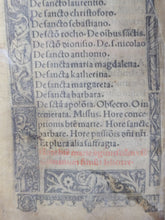 De sancto laurentio.
De sancto christoforo.
De sancto sebastiano.
De sctõ rocho. De oibus sãctis.
De sctõ dionisio. De s. nicolao
De sancto anthonio.
De sancta maria magdalena.
De sancta katherina.
De sancta margareta.
De sancta barbara.
De sctã apolõia. Obsecro. O in
temerata. Missus. Hore concep
tionis btẽ marie. Hore sancte
barbare. Hore passiõis dñi
Et plura alia suffragia.